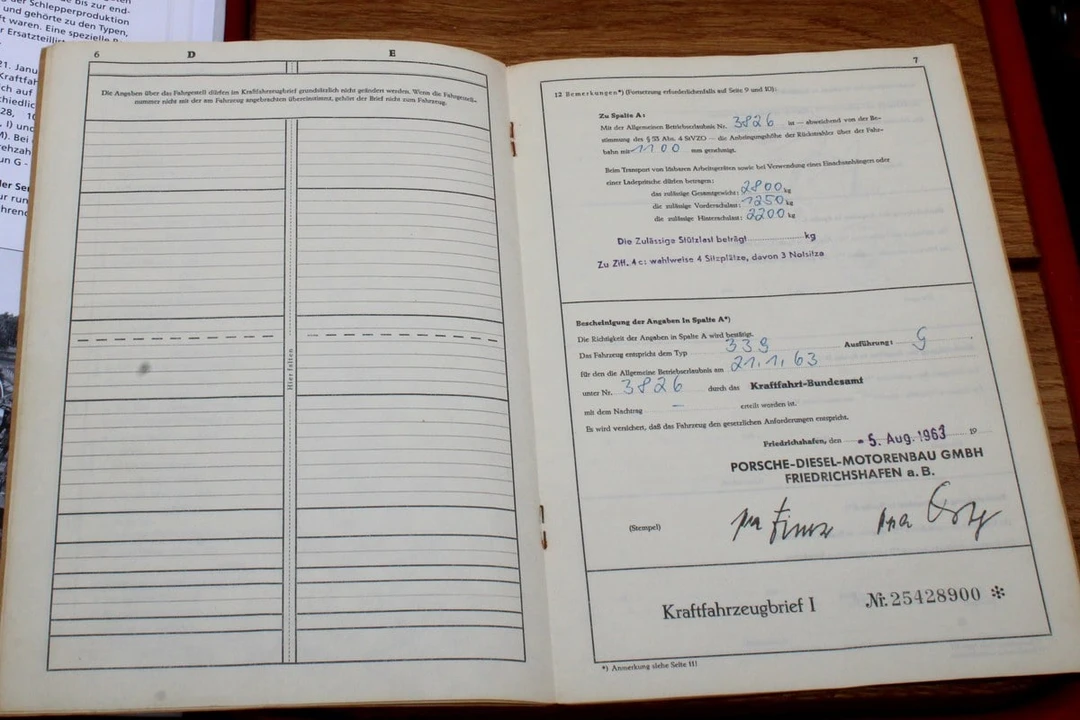 te bis zur end-
der Schlepperproduktion
und gehörte zu den Typen,
ft waren. Eine spezielle
r Ersatzteillist
21. Janu
Kraftfah
ch auf
chiedlic
28, 10
I) und
M). Bei
rehzah
un G -
ler Ser
ur run
ährend
6
D
E
Die Angaben über das Fahrgestell dürfen im Kraftfahrzeugbrief grundsätzlich nicht geändert werden. Wenn die Fahrgestell-
nummer nicht mit der am Fahrzeug angebrachten übereinstimmt, gehört der Brief nicht zum Fahrzeug.
Hier falten
7
12 Bemerkungen*) (Fortsetzung erforderlichenfalls auf Seite 9 und 10):
Zu Spalte A:
Mit der Allgemeinen Betriebserlaubnis Nr. 3826 ist — abweichend von der Be-
stimmung des § 53 Abs. 4 StVZO — die Anbringungshöhe der Rückstrahler über der Fahr-
bahn mit 1100 mm genehmigt.
Beim Transport von lösbaren Arbeitsgeräten sowie bei Verwendung eines Einachsanhängers oder
einer Ladepritsche dürfen betragen:
das zulässige Gesamtgewicht: 2800 kg
die zulässige Vorderachslast: 1250 kg
die zulässige Hinterachslast: 2200 kg
Die Zulässige Stützlast beträgt kg
Zu Ziff. 4 c: wahlweise 4 Sitzplätze, davon 3 Notsitze
Bescheinigung der Angaben in Spalte A*)
Die Richtigkeit der Angaben in Spalte A wird bestätigt.
Das Fahrzeug entspricht dem Typ 339 Ausführung: G
für den die Allgemeine Betriebserlaubnis am 21.1.63
unter Nr. 3826 durch das Kraftfahrt-Bundesamt
mit dem Nachtrag — erteilt worden ist.
Es wird versichert, daß das Fahrzeug den gesetzlichen Anforderungen entspricht.
Friedrichshafen, den - 5. Aug. 1963 19
PORSCHE-DIESEL-MOTORENBAU GMBH
FRIEDRICHSHAFEN a. B.
(Stempel)
ppa
Kraftfahrzeugbrief I
Nr. 25428900 *
*) Anmerkung siehe Seite 11!